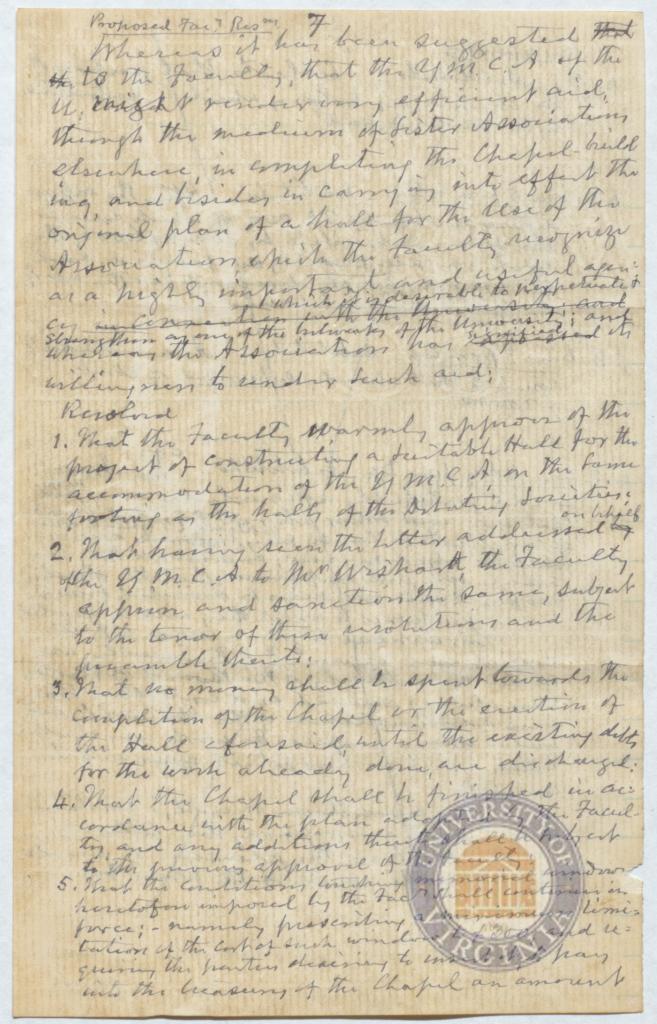 Proposed Fac.y Resns 7
Whereas it has been suggested that
the to the Faculty, that the Y.M.C.A of the
U. might render very efficient aid,
through the medium of Sister Associations
elsewhere, in completing the Chapel-build
ing and besides in carrying into effect the
original plan of a hall for the use of the
Association which the Faculty recognize
as a highly important and useful agen-
which it is desirable to perpetuate &
cy in connection with the University; and
strengthen as one of the of the University; and
whereas the Association has signified its
willingness to render such aid;
Resolved
1. That the Faculty warmly approve of the
project of constructing a suitable Hall for the
accommodation of the Y.M.C.A, on the same
footing as the halls of the Debating Societies:
on behalf
2. That having seen the letter addressed by
of the Y.M.C.A to Mr Wishart, the Faculty
approve and sanction the same, subject
to the tenor of these resolutions and the
preamble thereto:
3. That no money shall be spent towards the
completion of the Chapel or the erection of
the Hall aforesaid, until the existing debts
for the work already done, are discharged:
4. That the Chapel shall be finished in ac-
cordance with the plan adopted by the Facul-
ty and any additions thereto shall be subject
to the previous approval of the
5. That the conditions touching memorial windows
heretofore imposed by the Fac shall continue in
force; - namely prescribing a limi-
tation of the cost of such window and re-
quiring the parties desiring to insert to pay
into the treasury of the Chapel an amount
UNIVERSITY OF VIRGINIA